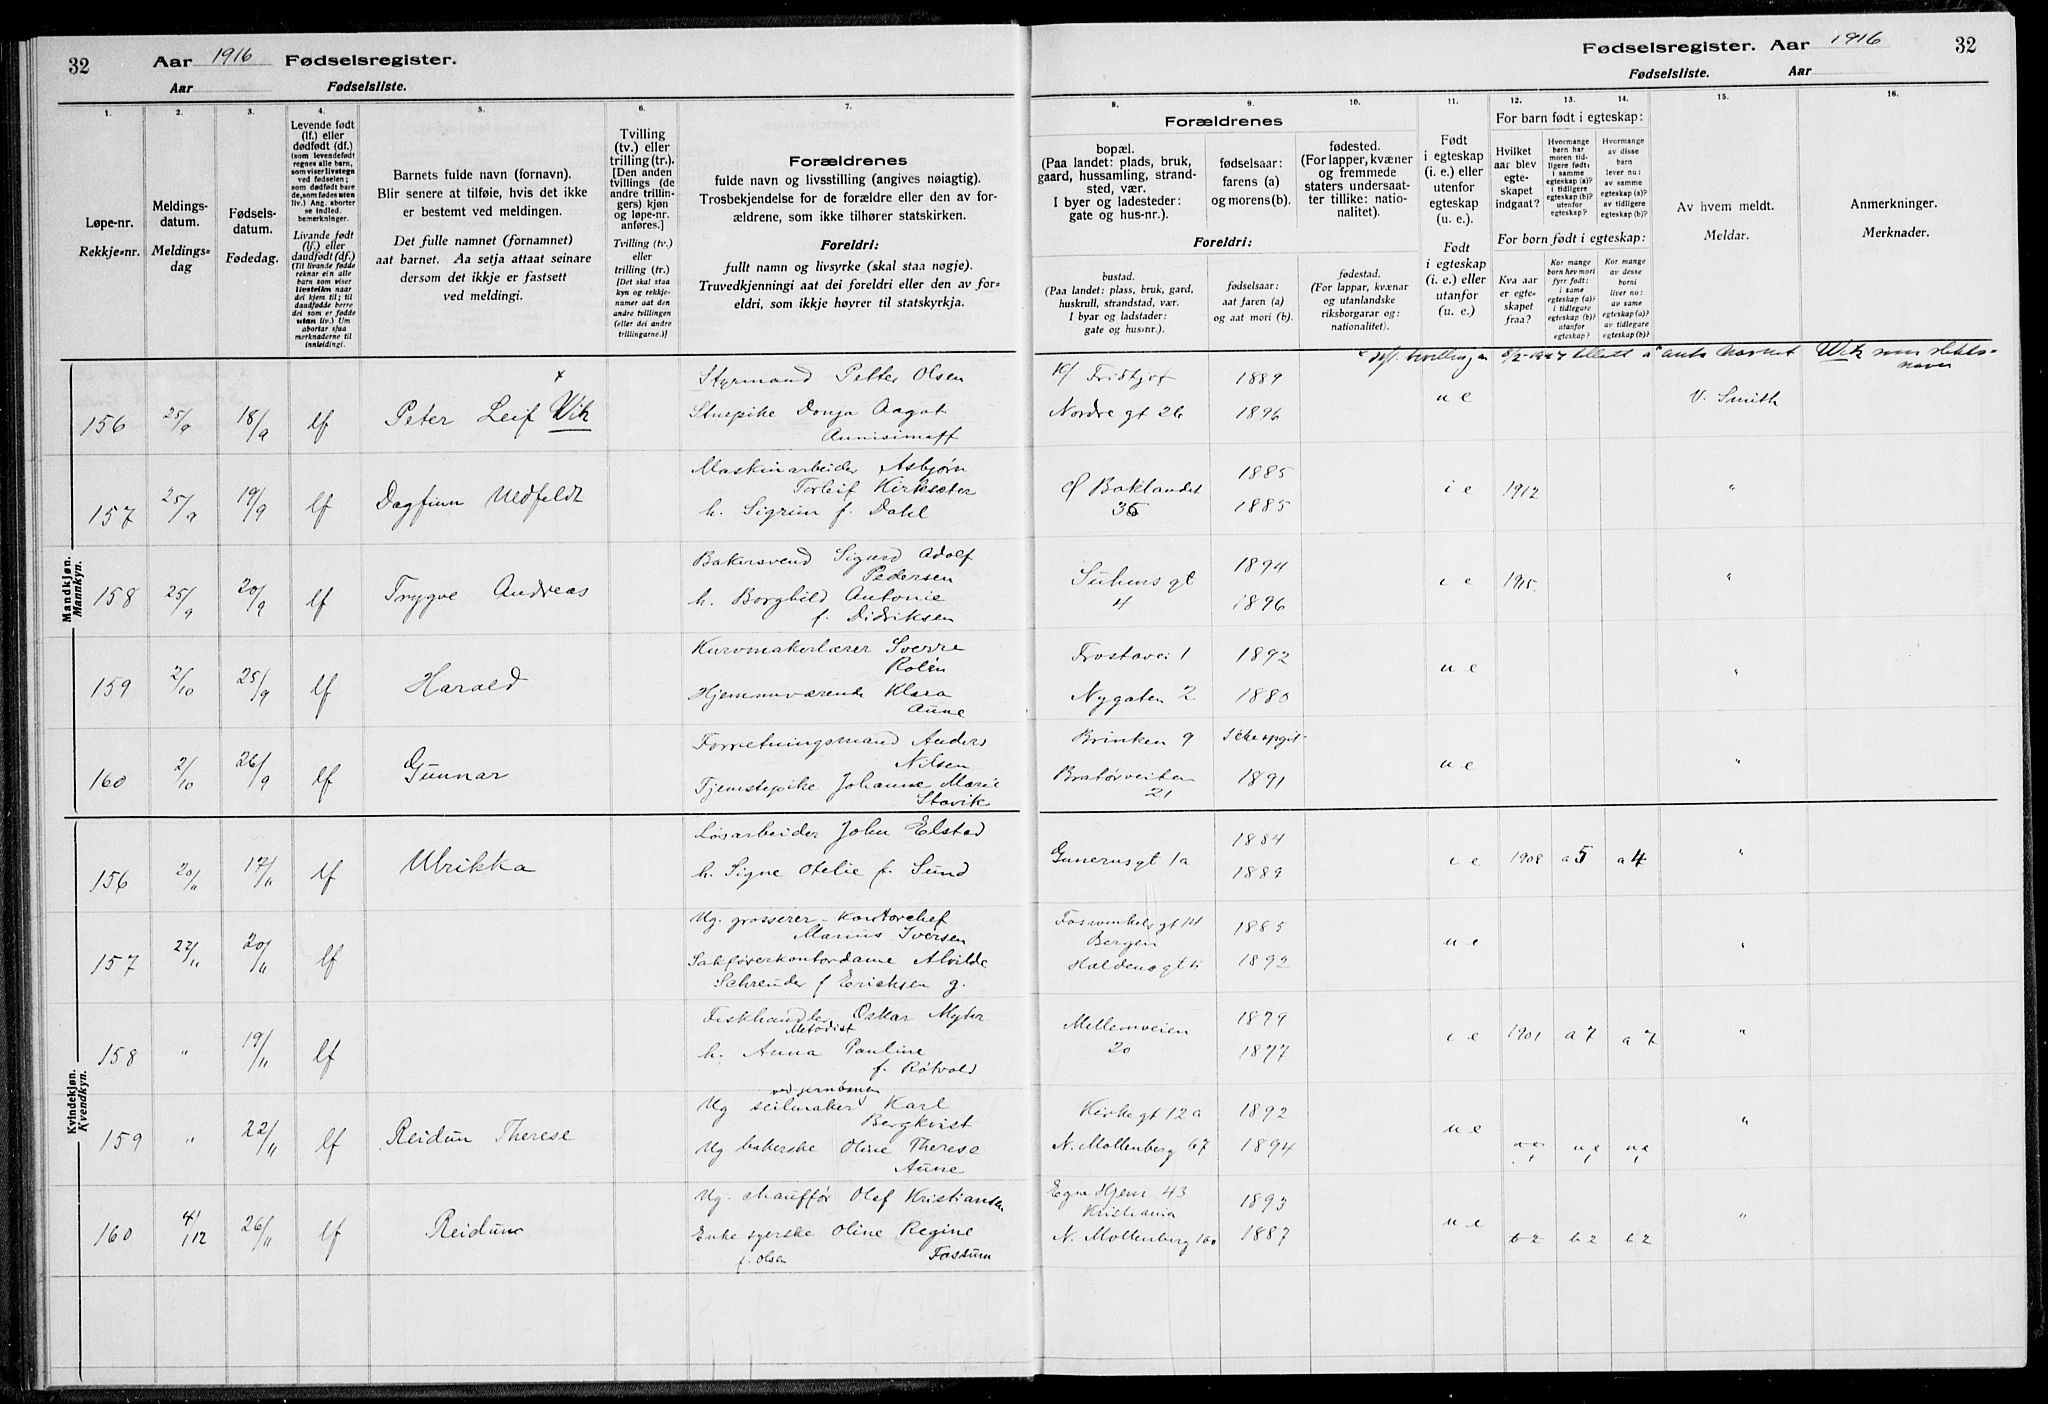 32 Aar 1916 Fødselsregister.
Aar Fødselsliste.
Fødselsregister. Aar 1916 32
Fødselsliste. Aar
1. 2. 3. 4. 5. 6. 7. 8. 9. 10. 11. 12. 13. 14. 15. 16.
Løpe-nr.
Rekkje-nr.
Meldings-
datum.
Meldings-
dag
Fødsels-
datum.
Fødedag.
Levende født
(lf.) eller
dødfødt (df.)
(som levendefødt
regnes alle barn,
som viser livstegn
ved fødselen;
som dødfødt bare
de, som fødes uten
liv.) Ang. aborter
se indled.
bemerkninger.
Livande født
(lf.) eller
daudfødt (df.)
(Til livande fødde
reknar ein alle
barn som viser
livsteikn naar
dei kjem til; til
daudfødde berre
dei som er fødde
utan liv.) Um
abortar sjaa
merknaderne til
innleidingi.
Barnets fulde navn (fornavn).
Blir senere at tilføie, hvis det ikke
er bestemt ved meldingen.
Det fulle namnet (fornamnet)
aat barnet. Aa setja attaat seinare
dersom det ikkje er fastsett
ved meldingi.
Tvilling
(tv.) eller
trilling (tr.).
[Den anden
tvillings (de
andre trillin-
gers) kjøn
og løpe-nr.
anføres.]
Tvilling (tv.)
eller
trilling (tr.)
[Det skal staa
kyn og rekkje-
numer aat den
andre tvillingen
(eller dei andre
trillingarne.)]
Forældrenes
fulde navn og livsstilling (angives nøiagtig).
Trosbekjendelse for de forældre eller den av for-
ældrene, som ikke tilhører statskirken.
Foreldri:
fullt namn og livsyrke (skal staa nøgje).
Truvedkjenningi aat dei foreldri eller den av for-
eldri, som ikkje høyrer til statskyrkja.
Forældrenes
bopæl.
(Paa landet: plads, bruk,
gaard, hussamling, strand-
sted, vær.
I byer og ladesteder:
gate og hus-nr.).
fødselsaar:
farens (a)
og morens (b).
fødested.
(For lapper, kvæner
og fremmede
staters undersaat-
ter tillike: natio-
nalitet).
Foreldri:
bustad.
(Paa landet: plass, bruk, gard,
huskrull, strandstad, vær.
I byar og ladstader:
gate og hus-nr.).
fødselsaar:
aat faren (a)
og aat mori (b).
fødestad.
(For lappar, kvænar
og utanlandske
riksborgarar og:
nationalitet).
Født
i egteskap
(i. e.) eller
utenfor
egteskap
(u. e.).
Født
i egteskap
(i. e.) eller
utanfor
egteskap
(u. e.)
For barn født i egteskap:
Hvilket
aar blev
egte-
skapet
indgaat?
Hvormange
barn har
moren tid-
ligere født:
i samme
egteskap (a)?
i tidligere
egteskap (b)?
utenfor
egteskap?
Hvormange
av disse
barn
lever nu:
av samme
egteskap (a)?
av tidligere
egteskap (b)?
For born født i egteskap:
Kva aar
er egte-
skapet
fraa?
Kor mange
born hev mori
fyrr født:
i same
egteskap (a)?
i tidlegare
egteskap (b)?
utanfor
egteskap?
Kor mange
av desse
borni
liver no:
av same
egteskap (a)?
av tidlegare
egteskap (b)?
Av hvem meldt.
Meldar.
Anmerkninger.
Merknader.
Mandkjøn.
Mannkyn.
Wik som slekts-
navn
156 25/9 18/9 lf Peter Leif Wik Styrmand Petter Olsen Fridtjof 1889 u e V. Smith
Stuepike Donja Aagot Nordre gt 26 1896
157 25/9 19/9 lf Dagfinn Uldfeldt Maskinarbeider Asbjørn 1885 i e 1912 "
Torleif Kirksæter Ø Baklandet
h. Sigrun f. Dahl 36 1885
158 25/9 20/9 lf Trygve Andreas Bakersvend Sigurd Adolf 1894 i e 1915 "
Pedersen Suhms gt
h. Borghild Antonie 4 1896
f. Didriksen
159 2/10 25/9 lf Harald Kurvmakerlærer Sverre Frostavei 1 1892 u e "
Rolén
Hjemmeværende Klara Nygaten 2 1880
Aune
160 2/10 26/9 lf Gunnar Forretningsmand Anders Brinken 9 Ikke opgit u e "
Nilsen
Tjenestepike Johanne Marie Bratørveiten 1891
Stavik 21
Kvindekjøn.
Kvendkyn.
156 20/11 17/11 lf Ulrikka Løsarbeider John Elstad Gunerusgt 1a 1884 i e 1908 a 5 a 4 "
h. Signe Otelie f. Sund 1889
157 22/11 20/11 lf Ug. grosserer - Kontorchef gt 14 1885 u e "
Marius Iversen Bergen
Sakførerkontordame Alvilde 1892
Schreuder f Ericksen g.
158 " 19/11 lf Fiskhandler Oskar Myhr Mellemveien 1879 i e 1901 a 7 a 7 "
Metodist
h. Anna Pauline 20 1877
f. Røtvold
ved jernbanen
159 " 22/11 lf Reidun Therese Ug seilmaker Karl Kirkegt 12a 1892 u e "
Bergkvist
Ug bakerske Oline Therese N. Mollenberg 67 1894
Aune
160 4/12 26/11 lf Reidun Ug. chauffør Olaf Kristiansen Egne Hjem 43 1893 u e "
Kristiania
Enke syerske Oline Regine N. Mollenberg 1887 b 2 b 2 b 2
f. Olsen Fossum